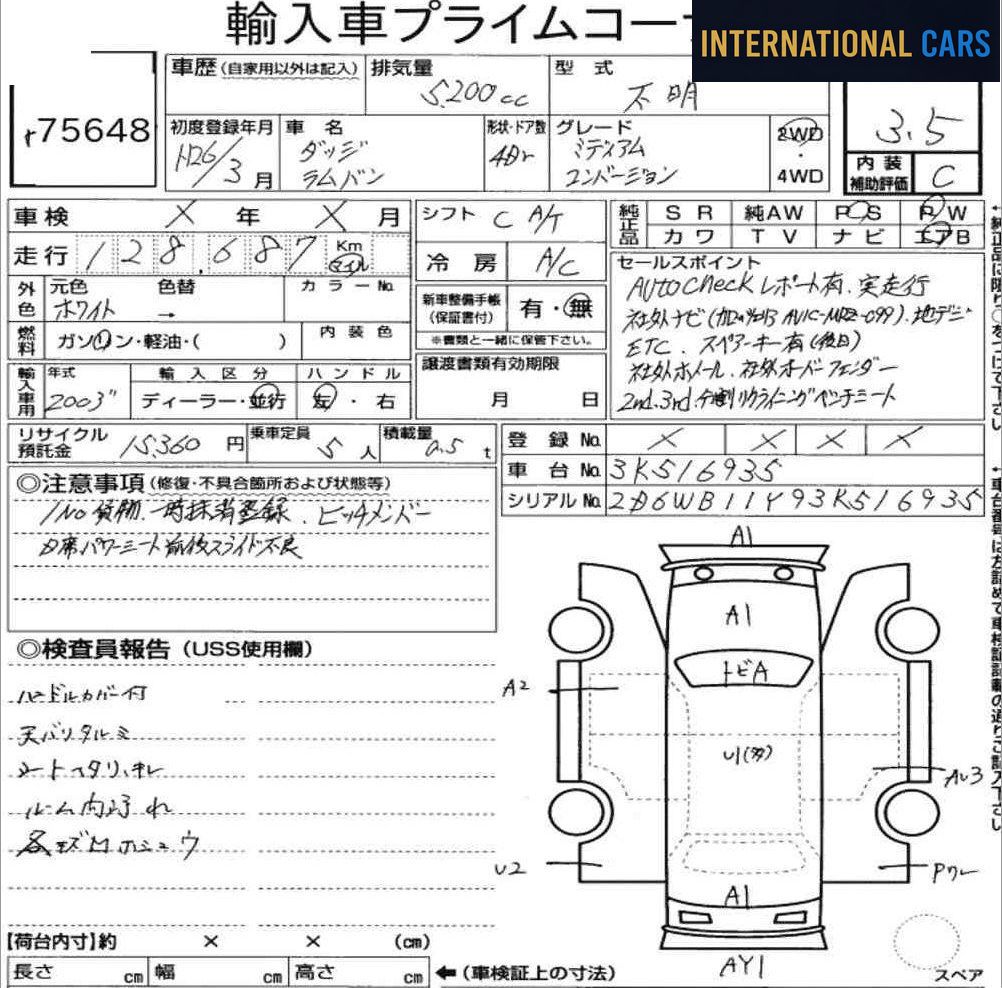 輸入車プライムコー
INTERNATIONAL CARS
75648
車歴(自家用以外は記入) 排気量 5200cc 型式 不明
3.5
初度登録年月 H26/3月 車名 ダッジ ラムバン 形状・ドア数 4Dr グレード ミディアム コンバージョン 2WD・4WD
内装補助評価 C
車検 × 年 × 月
シフト C A/T
純正品 SR 純AW PS PW
カワ TV ナビ エアB
走行 128,687 Km マイル
冷房 A/C
外色 元色 ホワイト 色替 → カラーNo.
新車整備手帳(保証書付) 有・無
※書類と一緒に保管下さい。
燃料 ガソリン・軽油・( ) 内装色
譲渡書類有効期限 月 日
輸入車用 年式 2003" 輸入区分 ディーラー・並行 ハンドル 左・右
セールスポイント
AUTOCheckレポート有、実走行
社外ナビ(カロッツェリア AVIC-MRZ-099)、地デジ
ETC、スペアーキー有(後日)
社外ホイール、社外オーバーフェンダー
2nd.3rd.分割リクライニングベンチシート
リサイクル預託金 15,360円 乗車定員 5人 積載量 0.5t
登録No. × × × ×
車台No. 3K516935
シリアルNo. 2D6WB11Y93K516935
◎注意事項(修復・不具合箇所および状態等)
1No貨物、一時抹消登録、ヒッチメンバー
D席パワーシート前後スライド不良
◎検査員報告(USS使用欄)
ハンドルカバー付
天バリタルミ
シートヘタリ、キレ
ルーム内汚れ
各キズ凹ホシュウ
A1
A1
トビA
A2
U1(多)
AU3
U2
Pワレ
A1
AY1
スペア
【荷台内寸】約 × × (cm)
長さ cm 幅 cm 高さ cm ←(車検証上の寸法)